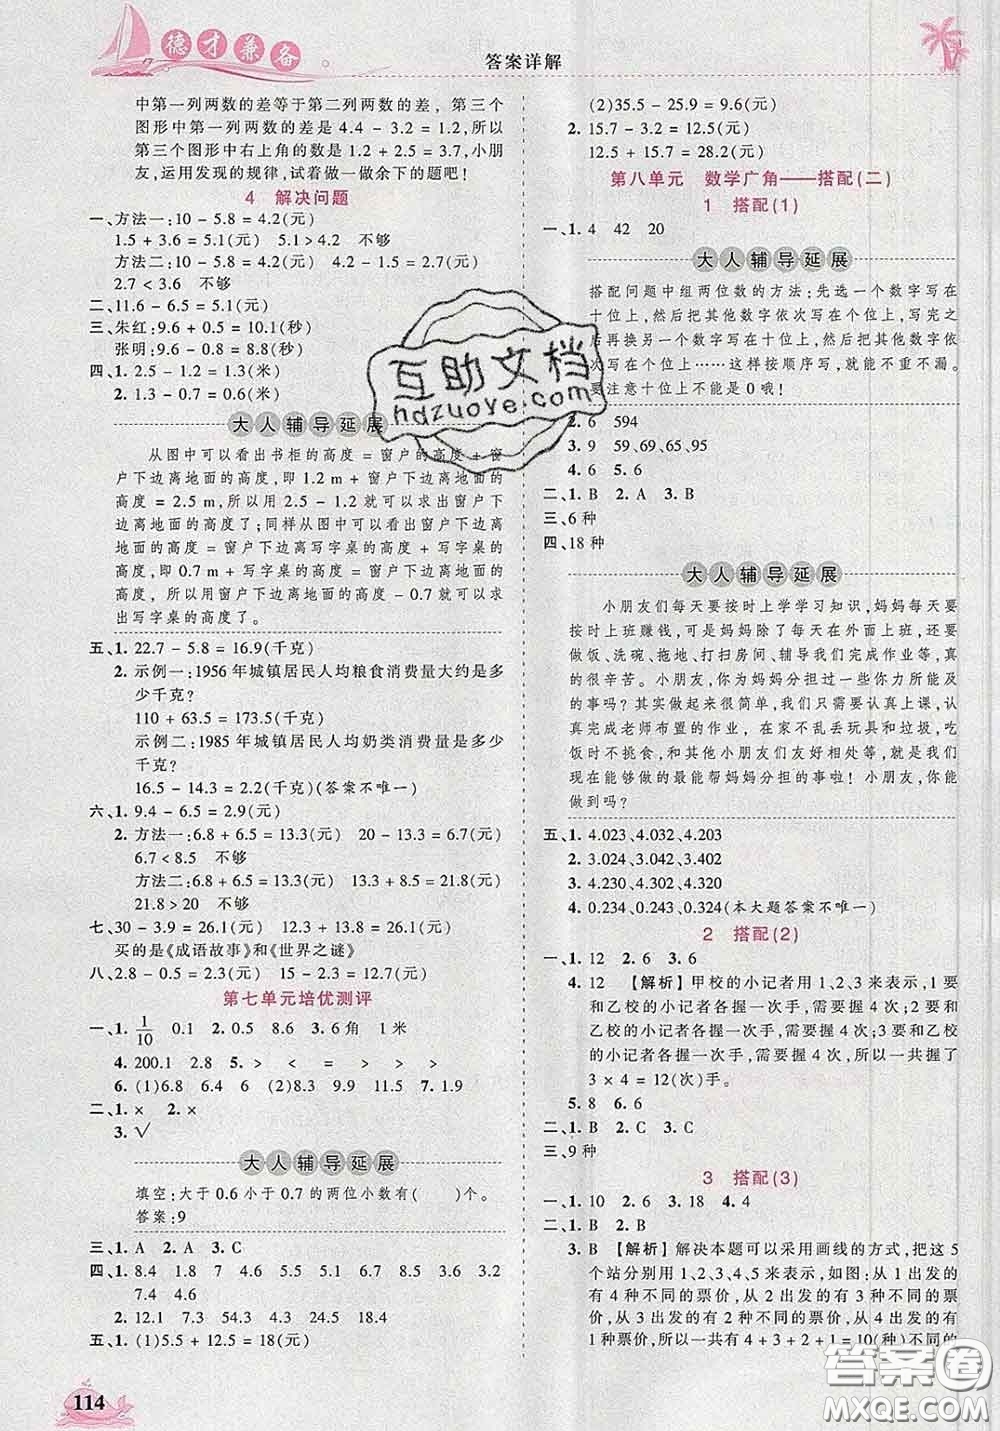 德才兼备
答案详解
中第一列两数的差等于第二列两数的差，第三个
图形中第一列两数的差是 4.4 - 3.2 = 1.2,所以
第三个图形中右上角的数是 1.2 + 2.5 = 3.7,小朋
友,运用发现的规律,试着做一做余下的题吧!
4 解决问题
一、方法一:10 - 5.8 = 4.2(元)
1.5 + 3.6 = 5.1(元) 5.1 > 4.2 不够
方法二:10 - 5.8 = 4.2(元) 4.2 - 1.5 = 2.7(元)
2.7 < 3.6 不够
二、11.6 - 6.5 = 5.1(元)
三、朱红:9.6 + 0.5 = 10.1(秒)
张明:9.6 - 0.8 = 8.8(秒)
四、1. 2.5 - 1.2 = 1.3(米)
2. 1.3 - 0.7 = 0.6(米)
大人辅导延展
从图中可以看出书柜的高度 = 窗户的高度 + 窗
户下边离地面的高度,即 1.2 m + 窗户下边离地面的
高度 = 2.5 m,所以用 2.5 - 1.2 就可以求出窗户下
边离地面的高度了;同样从图中可以看出窗户下边
离地面的高度 = 窗户下边离写字桌的高度 + 写字
桌的高度,即 0.7 + 写字桌的高度 = 窗户下边离地面的
高度，所以用窗户下边离地面的高度 - 0.7 就可以求
出写字桌的高度了。
五、1. 22.7 - 5.8 = 16.9(千克)
2. 示例一:1956 年城镇居民人均粮食消费量大约是多
少千克?
110 + 63.5 = 173.5(千克)
示例二:1985 年城镇居民人均奶类消费量是多少
千克?
16.5 - 14.3 = 2.2(千克)(答案不唯一)
六、1. 9.4 - 6.5 = 2.9(元)
2. 方法一:6.8 + 6.5 = 13.3(元) 20 - 13.3 = 6.7(元)
6.7 < 8.5 不够
方法二:6.8 + 6.5 = 13.3(元) 13.3 + 8.5 = 21.8(元)
21.8 > 20 不够
七、30 - 3.9 = 26.1(元) 12.8 + 13.3 = 26.1(元)
买的是《成语故事》和《世界之谜》
八、2.8 - 0.5 = 2.3(元) 15 - 2.3 = 12.7(元)
第七单元培优测评
一、1. 1/10 0.1 2. 0.5 8.6 3. 6角 1米
4. 200.1 2.8 5. > < = > >
6. (1)6.8 4.4 6 (2)8.3 9.5 7. 1.9
二、1. × 2. ×
3. √
大人辅导延展
填空:大于 0.6 小于 0.7 的两位小数有( )个。
答案:9
三、1. A 2. A 3. C
四、1. 8.4 1.8 7 4.6 5.5 5.1 6.8 3.6 3.2
7.4 4.6
2. 12.1 7.3 54.3 4.3 24.5 2.8
五、1. (1)5.5 + 12.5 = 18(元)
114
(2)35.5 - 25.9 = 9.6(元)
2. 15.7 - 3.2 = 12.5(元)
12.5 + 15.7 = 28.2(元)
第八单元 数学广角——搭配(二)
1 搭配(1)
一、1. 4 42 20
大人辅导延展
搭配问题中组两位数的方法:先选一个数字写在
十位上,然后把其他数字依次写在个位上,写完之
后再换另一个数字写在十位上,把其他数字依
次写在个位上……这样按顺序写,就能不重不漏。
要注意十位上不能是 0 哦!
2. 6 594
3. 9 59,69,65,95
4. 6 5. 6
二、1. B 2. A 3. B
三、6 种
四、18 种
大人辅导延展
小朋友们每天要按时上学学习知识,妈妈每天要
按时上班赚钱,可是妈妈除了每天在外面上班,还要
做饭、洗碗、拖地、打扫房间、辅导我们完成作业等,真
的很辛苦。小朋友,为妈妈分担过一些你力所能及
的事吗?其实很简单,我们只需要认真上课,认
真完成老师布置的作业，在家不乱丢玩具和垃圾,吃
饭时不挑食,和其他小朋友们友好相处等,就是我们
能够做的最能帮妈妈分担的事啦! 小朋友,你能
做到吗?
五、1. 4.023、4.032、4.203
2. 3.024、3.042、3.402
3. 4.230、4.302、4.320
4. 0.234、0.243、0.324(本大题答案不唯一)
2 搭配(2)
一、1. 12 2. 6 3. 6
4. 12 【解析】甲校的小记者用 1、2、3 来表示,1 要
和乙校的小记者各握一次手,需要握 4 次;2 要和
乙校的小记者各握一次手,需要握 4 次;3 要
和乙校的小记者各握一次手,需要握 4 次,所以一共握了
3 × 4 = 12(次)手。
5. 8 6. 6
二、1. B 2. C 3. C
三、9 种
3 搭配(3)
一、1. 10 2. 6 3. 18 4. 4
二、1. B 2. B
3. B 【解析】解决本题可以采用画线的方式,把这 5
个站分别用 1、2、3、4、5 来表示,如图:从 1 出发的
有 4 种不同的票价,从 2 出发的有 3 种不同的票
价,从 3 出发的有 2 种不同的票价,从 4 出发的有
1 种票价,所以一共有 4 + 3 + 2 + 1 = 10(种)不同的
互助文档
hdzuoye.com
答案圈
MXQE.COM